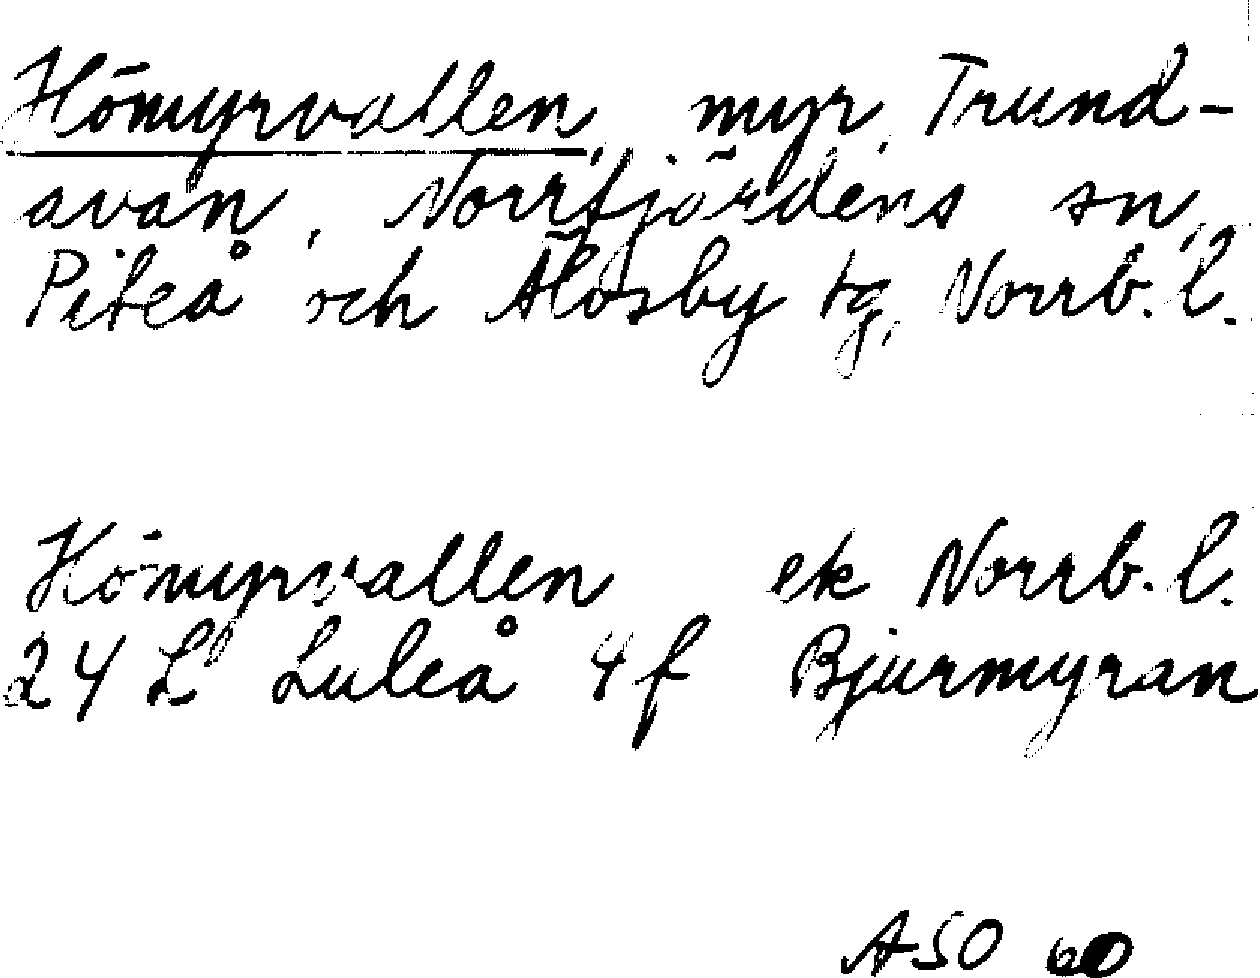 Hömyrvallen, myr, Trund-
avan, Norrfjärdens sn,
Piteå och Älvsby tg, Norrb. l.
Hömyrvallen ek Norrb. l.
24 L Luleå 4 f Bjurmyran
ASO 60